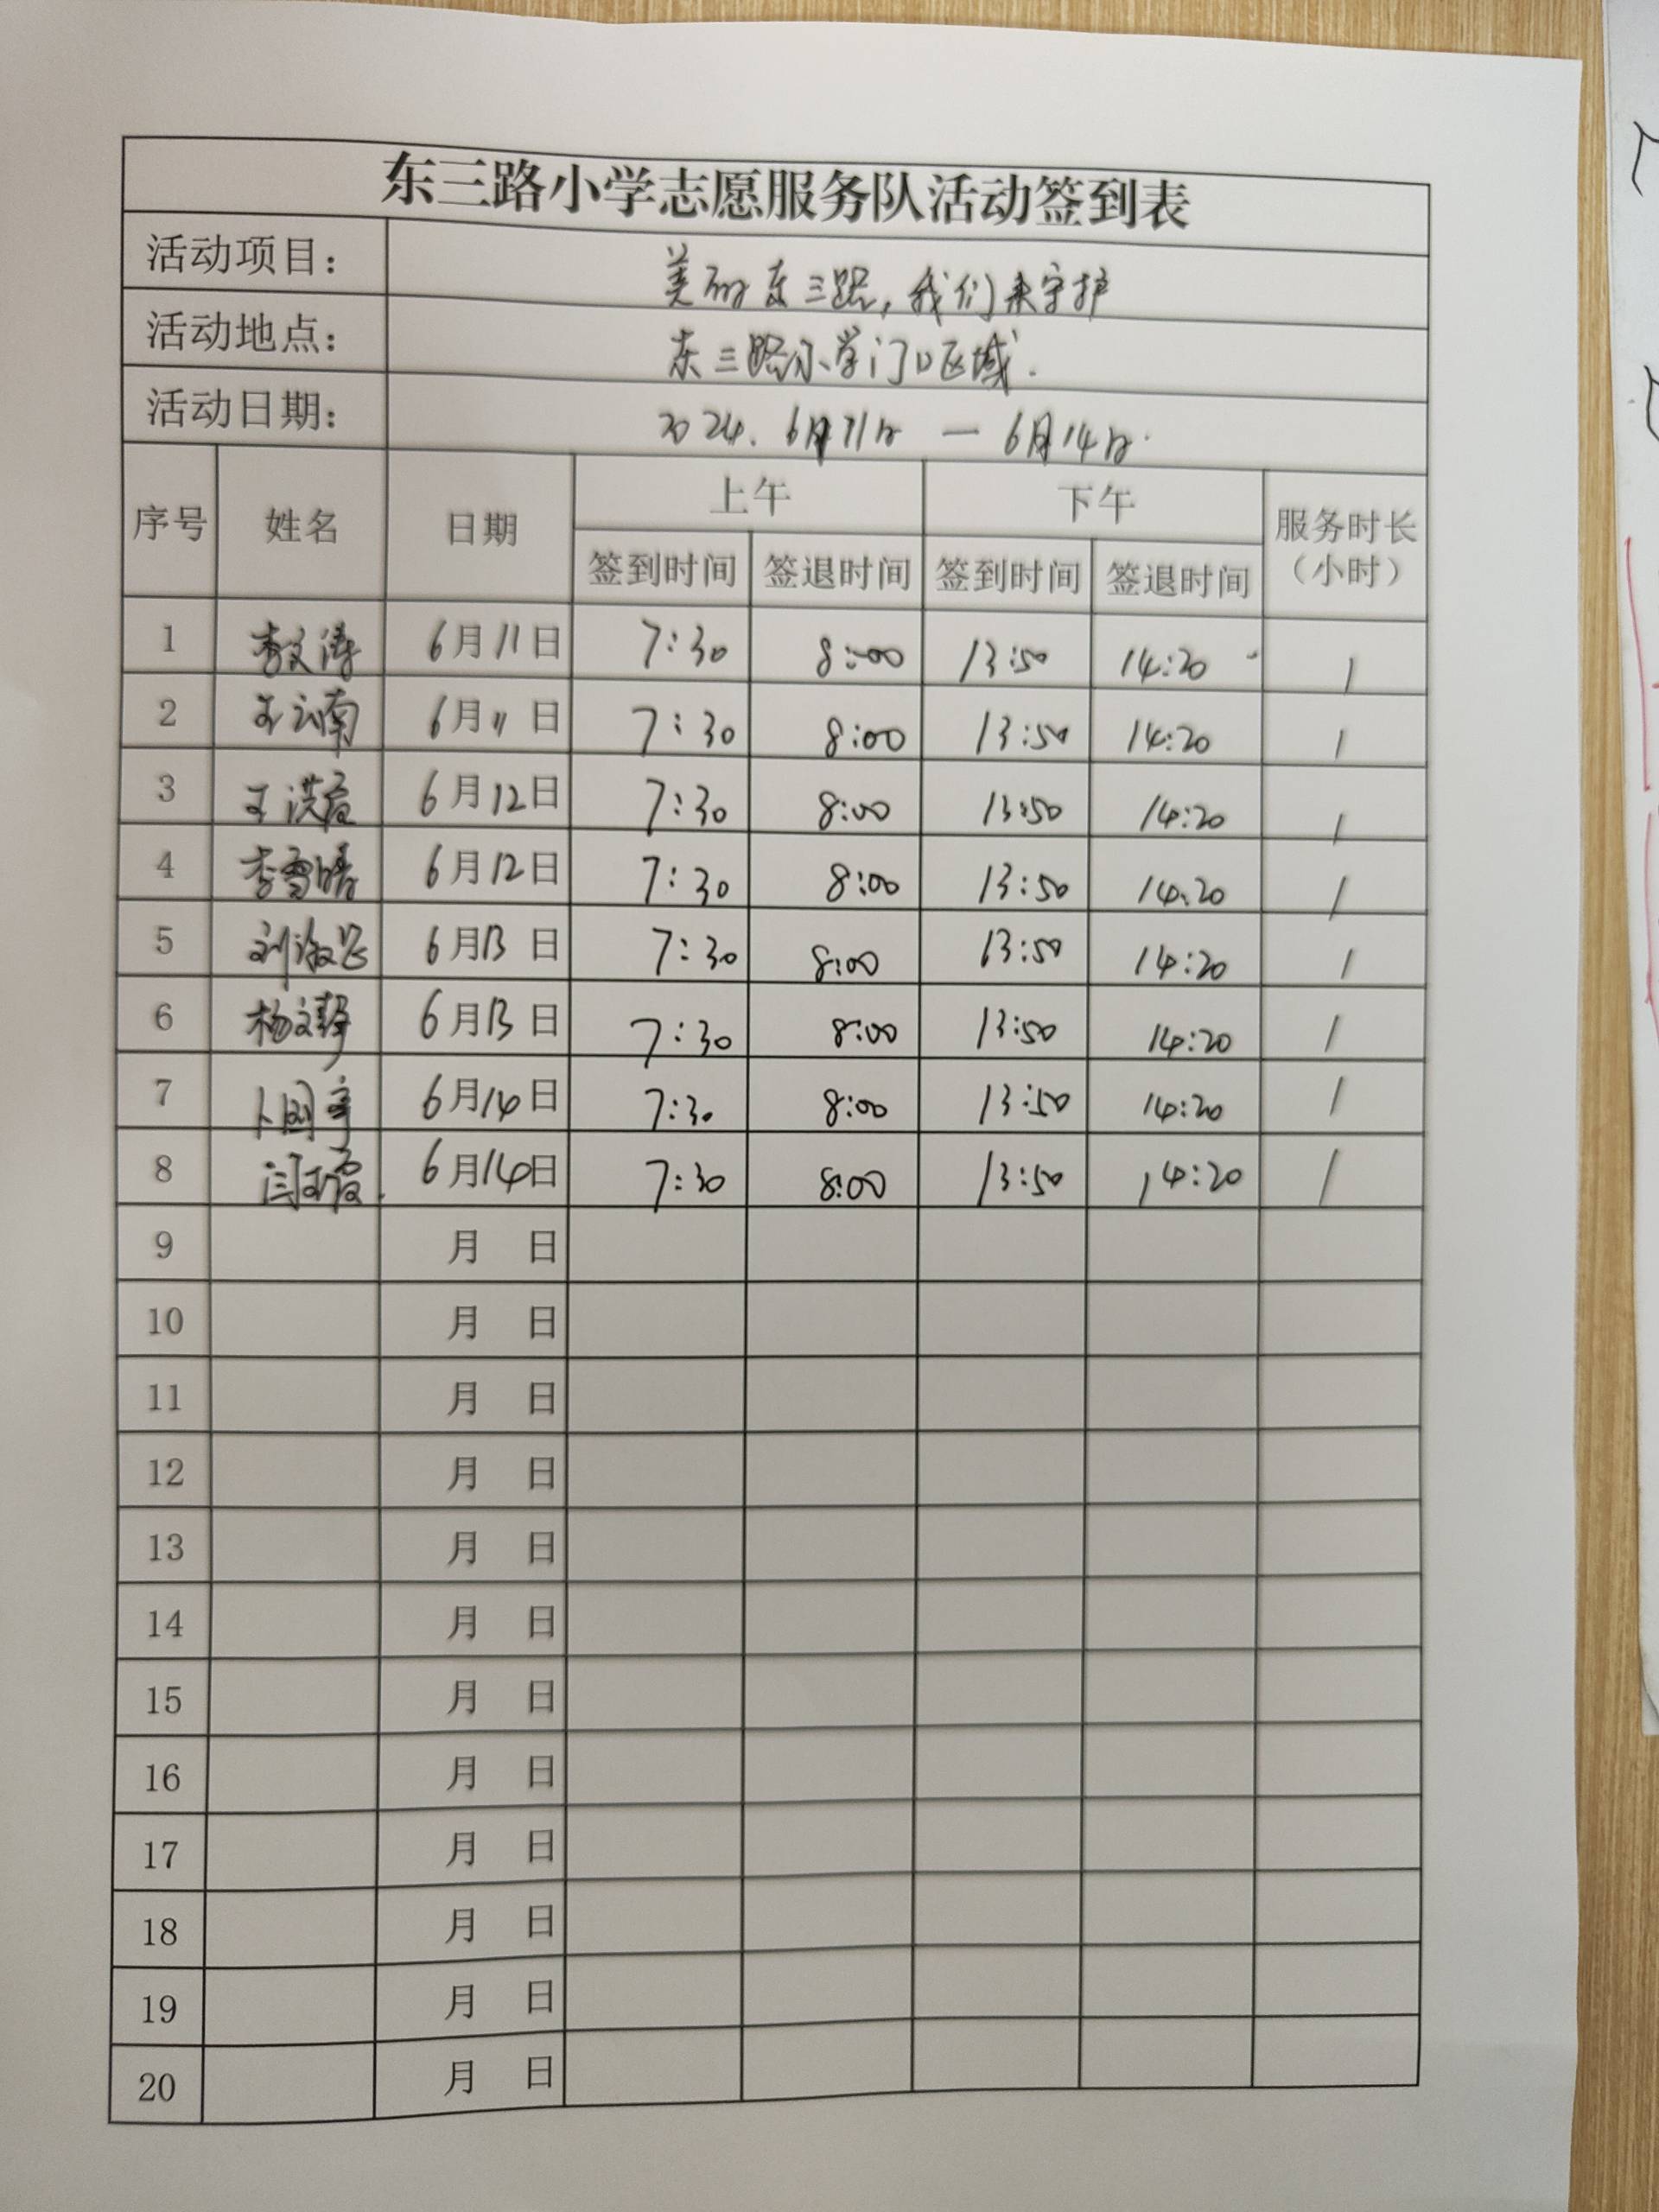 东三路小学志愿服务队活动签到表
活动项目： 美丽东三路，我们来守护
活动地点： 东三路小学门口区域.
活动日期： 2024.6月11日 — 6月14日.
序号 姓名 日期 上午 下午 服务时长（小时）
签到时间 签退时间 签到时间 签退时间
1 李文涛 6月11日 7:30 8:00 13:50 14:20 1
2 王云南 6月11日 7:30 8:00 13:50 14:20 1
3 王洪 6月12日 7:30 8:00 13:50 14:20 1
4 李雪晴 6月12日 7:30 8:00 13:50 14:20 1
5 刘 6月13日 7:30 8:00 13:50 14:20 1
6 杨文静 6月13日 7:30 8:00 13:50 14:20 1
7 卜 6月14日 7:30 8:00 13:50 14:20 1
8 闫 霞 6月14日 7:30 8:00 13:50 14:20 1
9 月 日
10 月 日
11 月 日
12 月 日
13 月 日
14 月 日
15 月 日
16 月 日
17 月 日
18 月 日
19 月 日
20 月 日